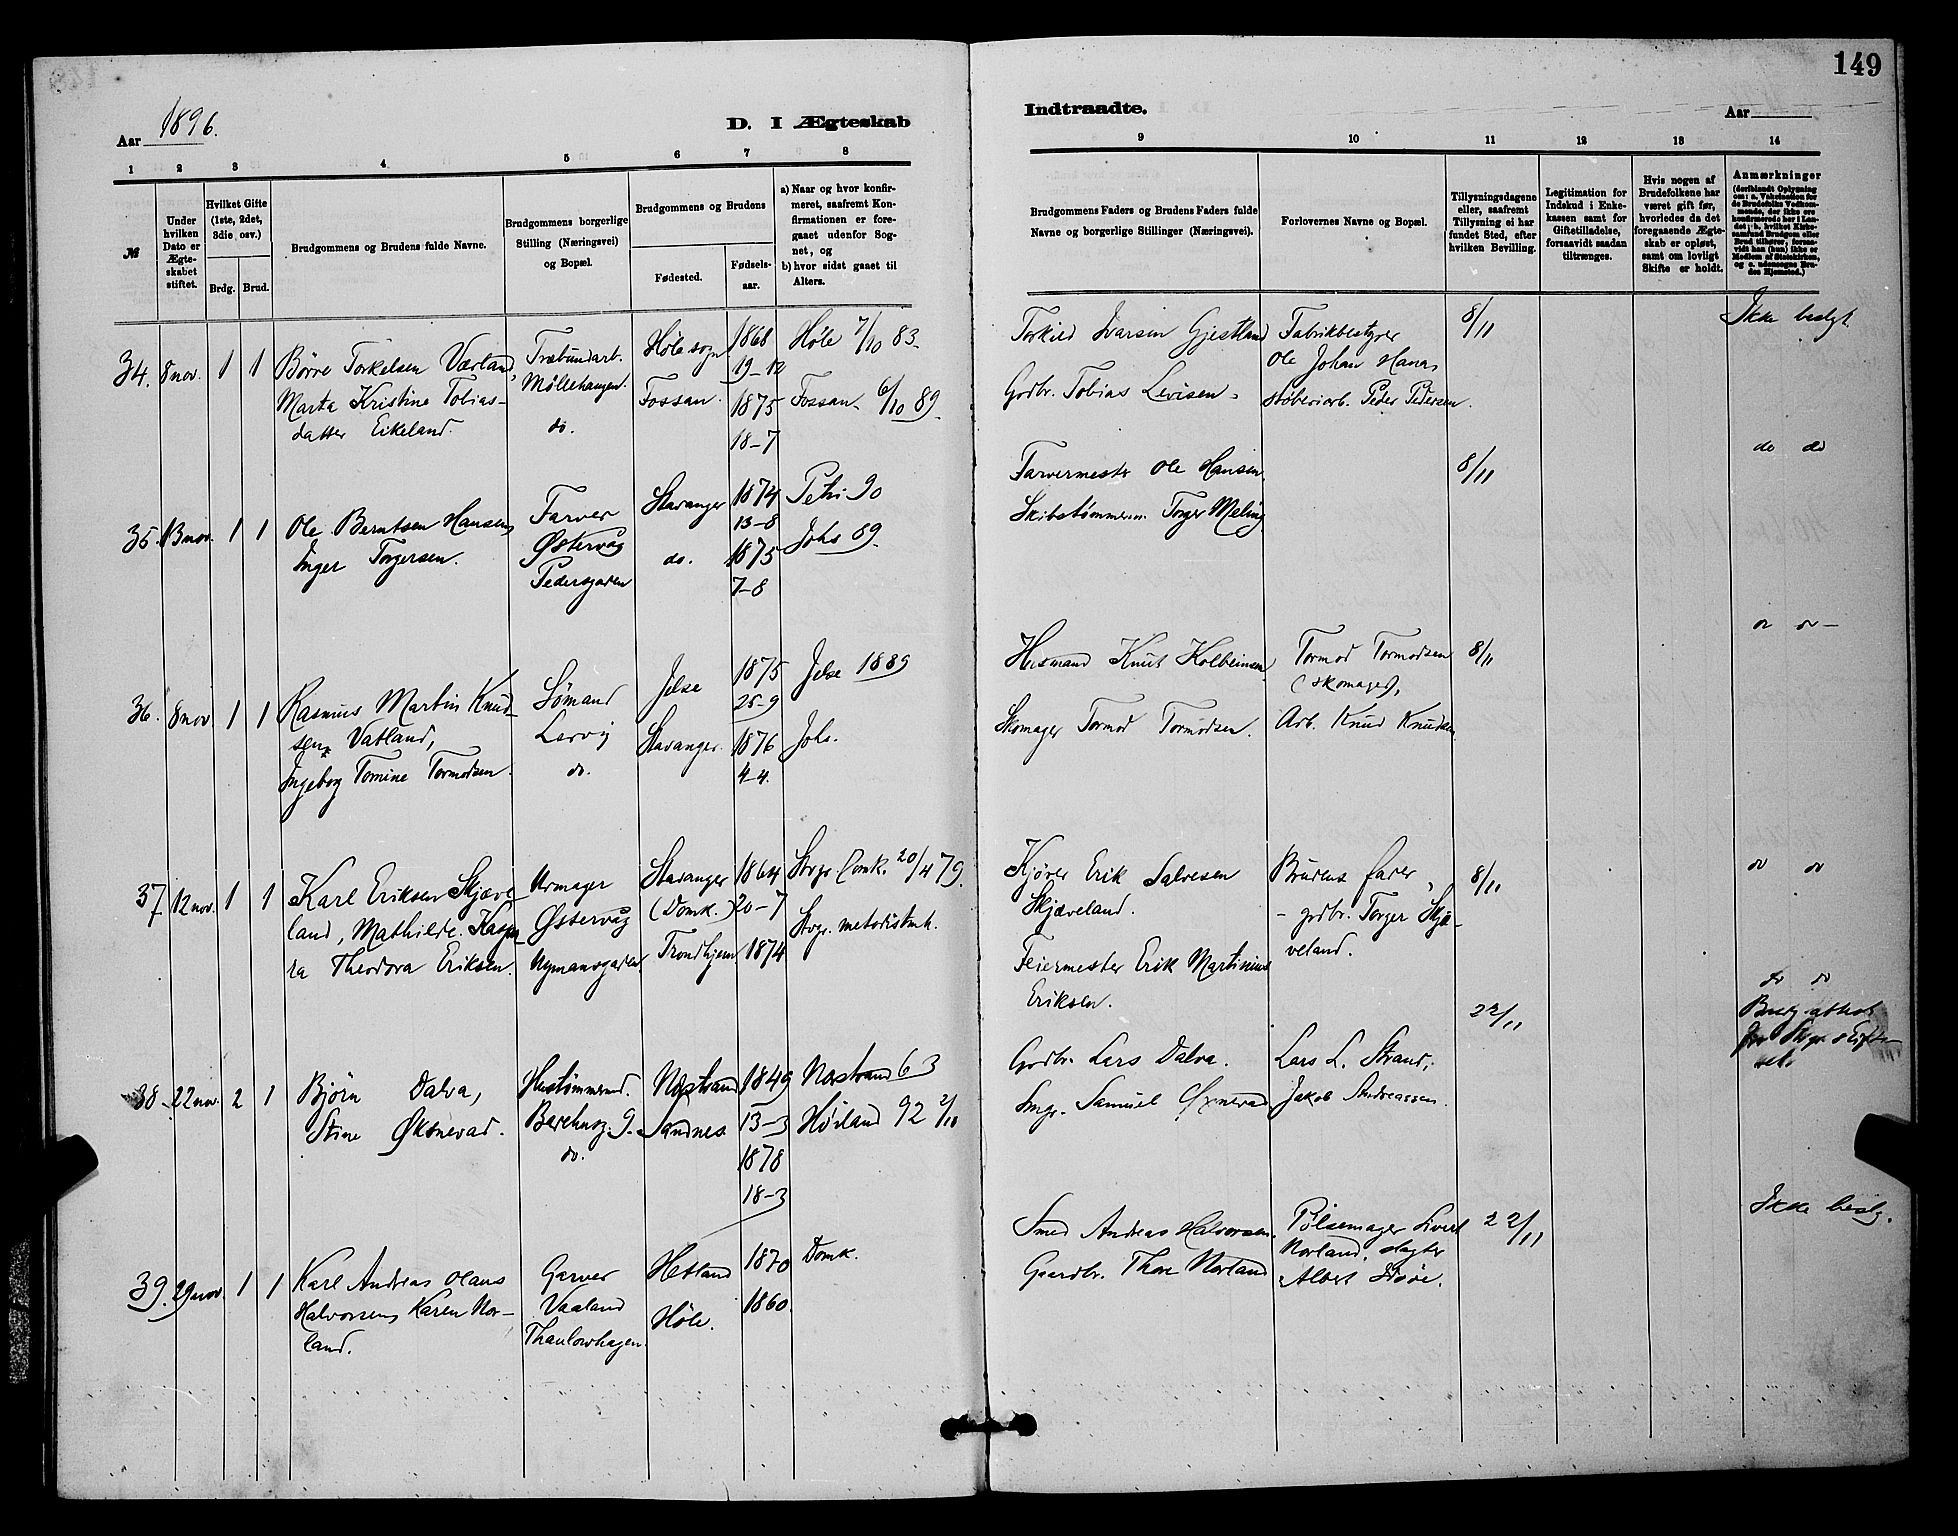 149
Aar 1896.
D. I Ægteskab
Indtraadte.
Aar
1 2 3 4 5 6 7 8
9 10 11 12 13 14
№
Under hvilken Dato er Ægteskabet stiftet.
Hvilket Gifte (1ste, 2det, 3die osv.)
Brdg. Brud.
Brudgommens og Brudens fulde Navne.
Brudgommens borgerlige Stilling (Næringsvei) og Bopæl.
Brudgommens og Brudens
Fødested.
Fødselsaar.
a) Naar og hvor konfirmeret, saafremt Konfirmationen er foregaaet udenfor Sognet, og
b) hvor sidst gaaet til Alters.
Brudgommens Faders og Brudens Faders fulde Navne og borgerlige Stillinger (Næringsvei).
Forlovernes Navne og Bopæl.
Tillysningsdagene eller, saafremt Tillysning ei har fundet Sted, efter hvilken Bevilling.
Legitimation for Indskud i Enkekassen samt for Giftetilladelse, forsaavidt saadan tiltrænges.
Hvis nogen af Brudefolkene har været gift før, hvorledes da det foregaaende Ægteskab er opløst, samt om lovligt Skifte er holdt.
Anmærkninger
34. 8 nov. 1 1
Børre Torkelsen Værland,
Marta Kristine Tobias-
datter Eikeland.
do.
Høle sogn
Fossan.
1868
19–12
1875
18–7
Høle 7/10 83.
Fossan 6/10 89.
Torkild Ivarsen Gjestland
Grdbr. Tobias Levisen.
Fabrikbestyrer
Ole Johan Hana,
støberiarb. Peder Pedersen.
8/11
Ikke beslgt.
35. 13 nov. 1 1
Ole Berntsen Hansen,
Inger Torgersen.
Farver
Østervåg
Pedersgaden
Stavanger
do.
1874
13–8
1875
7–8
Petri 90
Johs 89.
Farvermester Ole Hansen.
Skibstømmerm. Torger Meling
8/11
do do
36. 8 nov 1 1
Rasmus Martin Knud-
sen Vatland,
Ingeborg Tomine Tormodsen.
Sømand
Lervig
do.
Jelse
Stavanger.
1875
25–9
1876
4–4.
Jelse 1889
Johs.
Husmand Knut Kolbeinsen
Skomager Tormod Tormodsen.
Tormod Tormodsen
(skomager),
Arb. Knud Knudsen
8/11
do do
37 12 nov. 1 1
Karl Eriksen Skjæve-
land, Mathilde Kaspa-
ra Theodora Eriksen.
Urmager
Østervåg
Nymansgaden
Stavanger
(Domk.)
Trondhjem
1864
20–7
1874
Stvgr Domk. 20/4 79.
Stvgr. metodistmk.
Kjører Erik Salvesen
Skjæveland.
Feiermester Erik Martinius
Eriksen.
Brudens fader,
– grdbr. Torger Skjæ-
veland.
8/11
do do
38 22 nov. 2 1
Bjørn Dalva,
Stine Øksnevad.
Hustømmermd.
do.
Nærstrand
Sandnes
1849
13–3
1878
18–3
Nærstrand 63
Høiland 92 2/10
Grdbr. Lars Dalva.
Smgr. Samuel Øxnevad
Lars L. Strand,
Jakob Andreassen.
22/11
do do
39. 29 nov. 1 1
Karl Andreas Olaus
Halvorsen, Karen Nor-
land.
Garver
Vaaland
Thaulowhagen.
Hetland
Høle.
1870
1860.
Domk.
Smed Andreas Halvorsen.
Gaardbr. Thore Norland
Pølsemager Sivert
Norland, slagter
Albert Støve.
22/11
Ikke beslg.